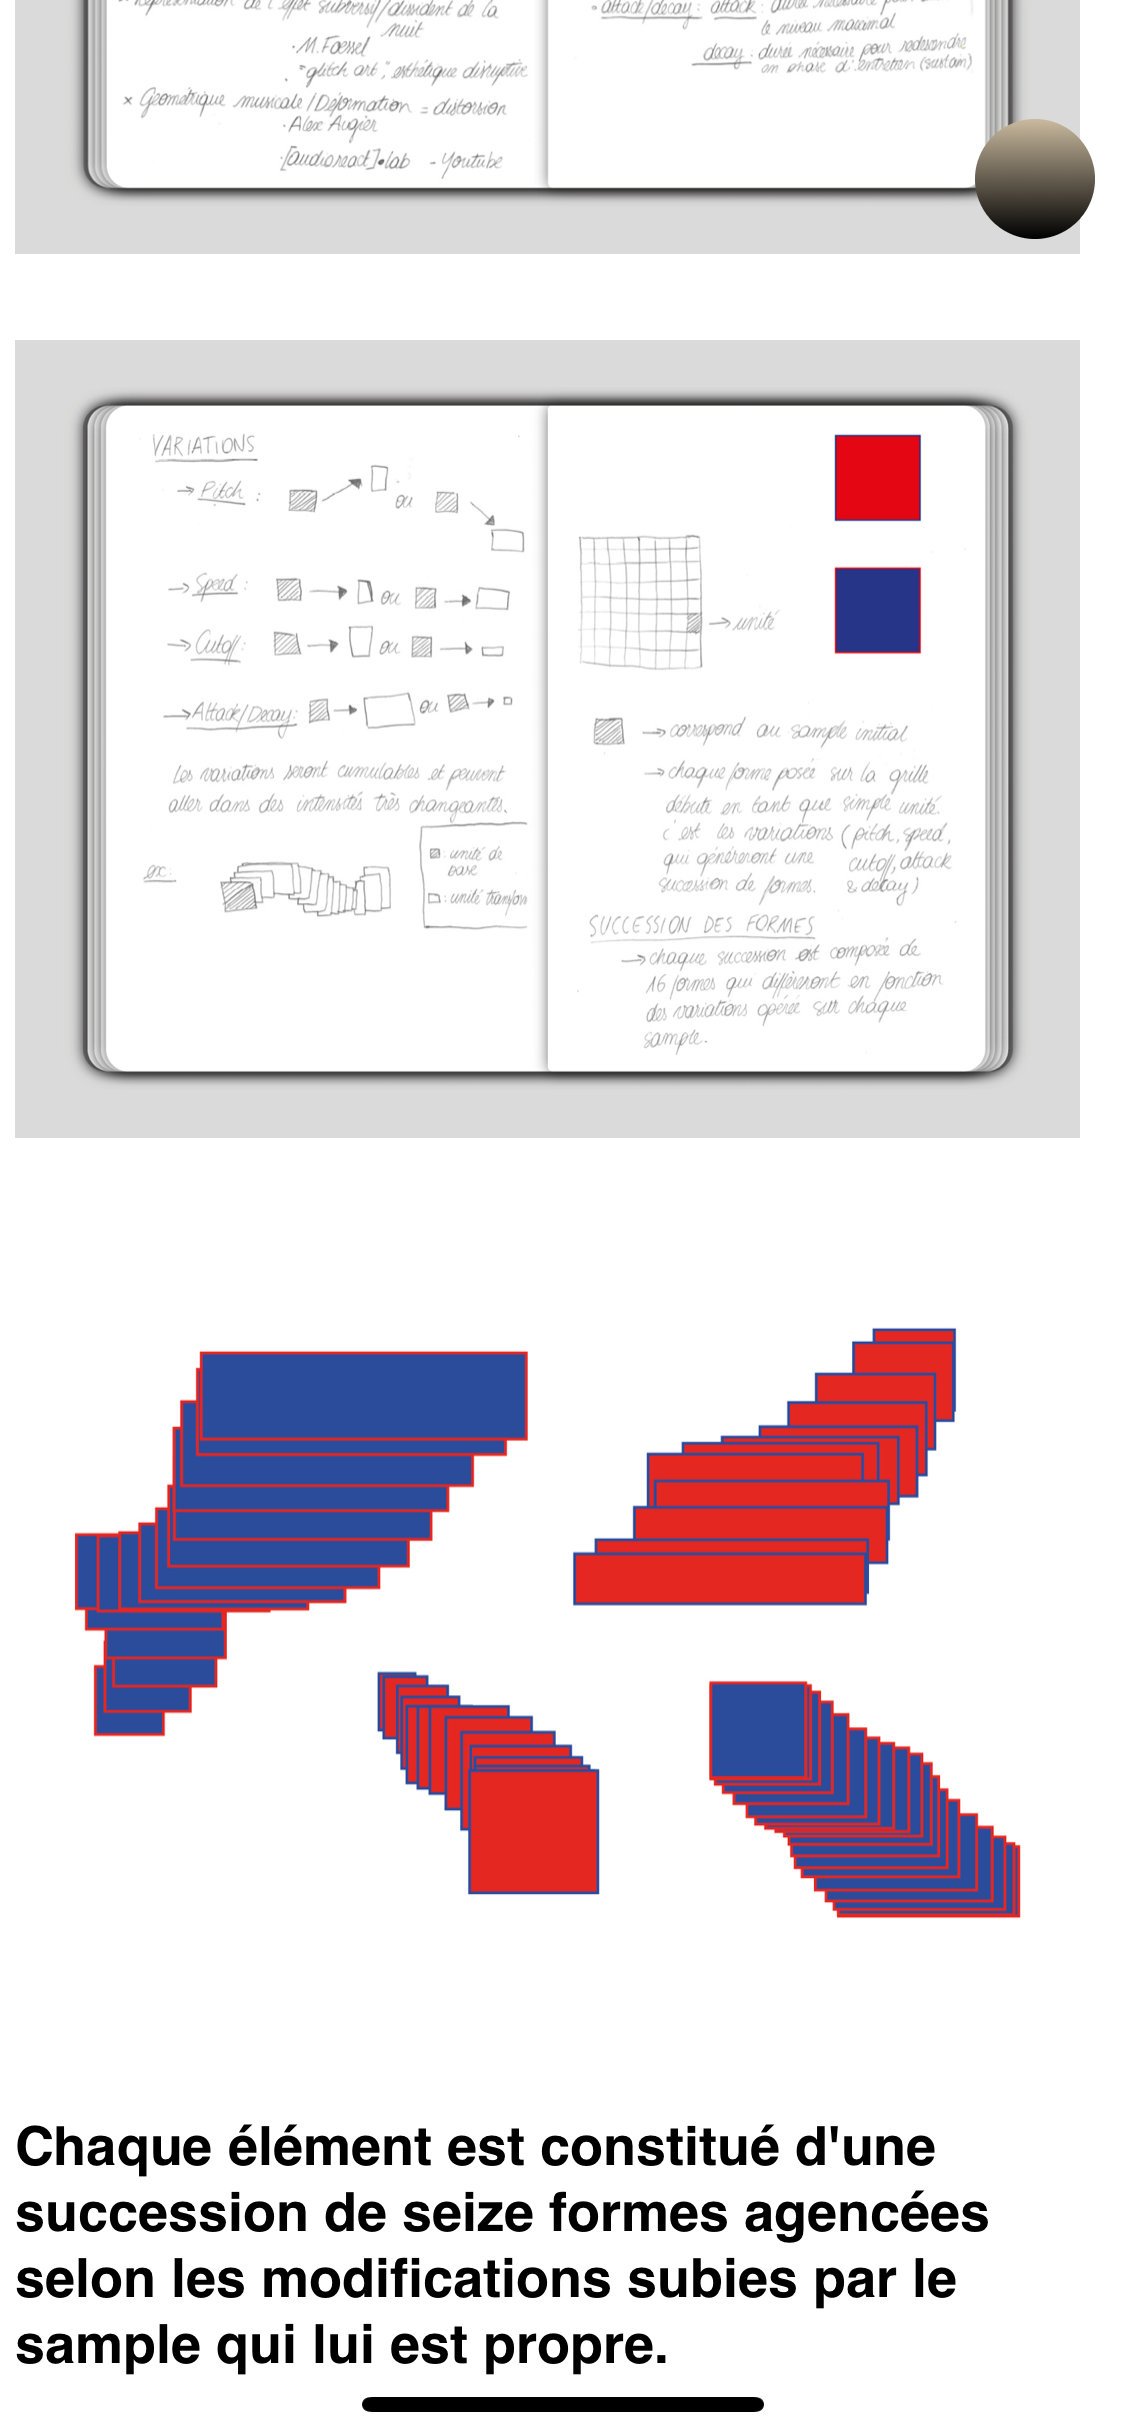 Représentation de l'effet subversif/dissident de la
nuit
· M. Foessel
· "glitch art", esthétique disruptive
× Géométrique musicale / Déformation = distorsion
· Alex Augier
· [audioreact]•lab - Youtube
• attack/decay : attack : durée nécessaire pour
le niveau maximal
decay : durée nécessaire pour redescendre
en phase d'entretien (sustain)
VARIATIONS
→ Pitch :
ou
→ Speed :
ou
→ Cutoff :
ou
→ Attack/Decay :
ou
Les variations seront cumulables et peuvent
aller dans des intensités très changeantes.
ex:
: unité de
base
: unité transform
→ unité
→ correspond au sample initial
→ chaque forme posée sur la grille
débute en tant que simple unité.
c'est les variations (pitch, speed,
qui génèreront une cutoff, attack
succession de formes. & decay)
SUCCESSION DES FORMES
→ chaque succession est composée de
16 formes qui diffèreront en fonction
des variations opérée sur chaque
sample.
Chaque élément est constitué d'une
succession de seize formes agencées
selon les modifications subies par le
sample qui lui est propre.